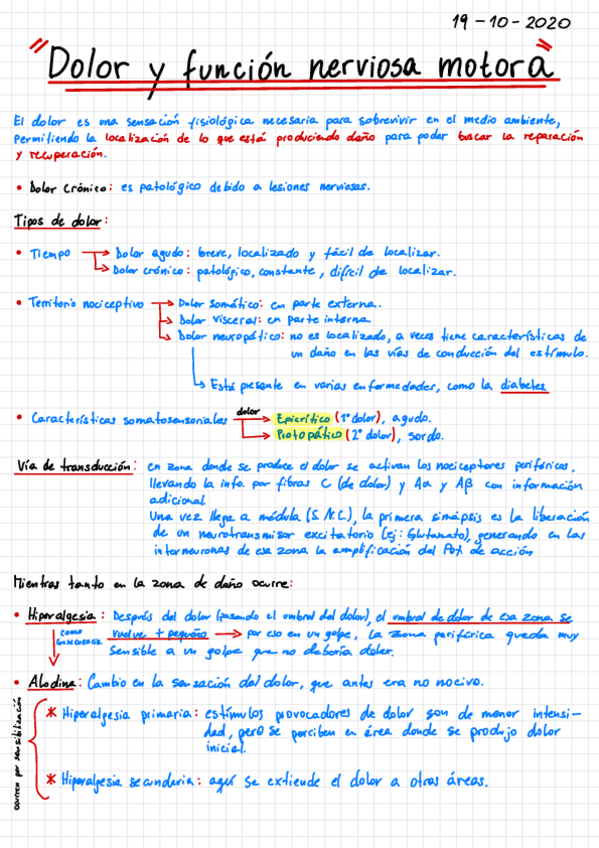 19-10-2020
"Dolor y función nerviosa motora"
El dolor es una sensación fisiológica necesaria para sobrevivir en el medio ambiente,
permitiendo la localización de lo que está produciendo daño para poder buscar la reparación
y recuperación.
• Dolor Crónico: es patológico debido a lesiones nerviosas.
Tipos de dolor:
• Tiempo → Dolor agudo: breve, localizado y fácil de localizar.
↳ Dolor crónico: patológico, constante, difícil de localizar.
• Territorio nociceptivo → Dolor somático: en parte externa.
↳ Dolor visceral: en parte interna
↳ Dolor neuropático: no es localizado, a veces tiene características de
un daño en las vías de conducción del estímulo.
↳ Está presente en varias enfermedades, como la diabetes
• Características somatosensoriales dolor → Epicrítico (1° dolor), agudo.
↳ Protopático (2° dolor), sordo.
Vía de transducción: en zona donde se produce el dolor se activan los nociceptores periféricos,
llevando la info. por fibras C (de dolor) y Aα y Aβ con información
adicional.
Una vez llega a médula (S.N.C.), la primera sinápsis es la liberación
de un neurotransmisor excitatorio (ej: Glutamato), generando en las
interneuronas de esa zona la amplificación del Pot. de acción
Mientras tanto en la zona de daño ocurre:
• Hiperalgesia: Después del dolor (pasando el umbral del dolor), el umbral de dolor de esa zona se
vuelve + pequeño → por eso en un golpe, la zona periférica queda muy
sensible a un golpe que no debería doler.
como consecuencia
• Alodinia: Cambio en la sensación del dolor, que antes era no nocivo.
ocurren por sensibilización
* Hiperalgesia primaria: estímulos provocadores de dolor son de menor intensi-
dad, pero se perciben en área donde se produjo dolor
inicial.
* Hiperalgesia secundaria: aquí se extiende el dolor a otras áreas.